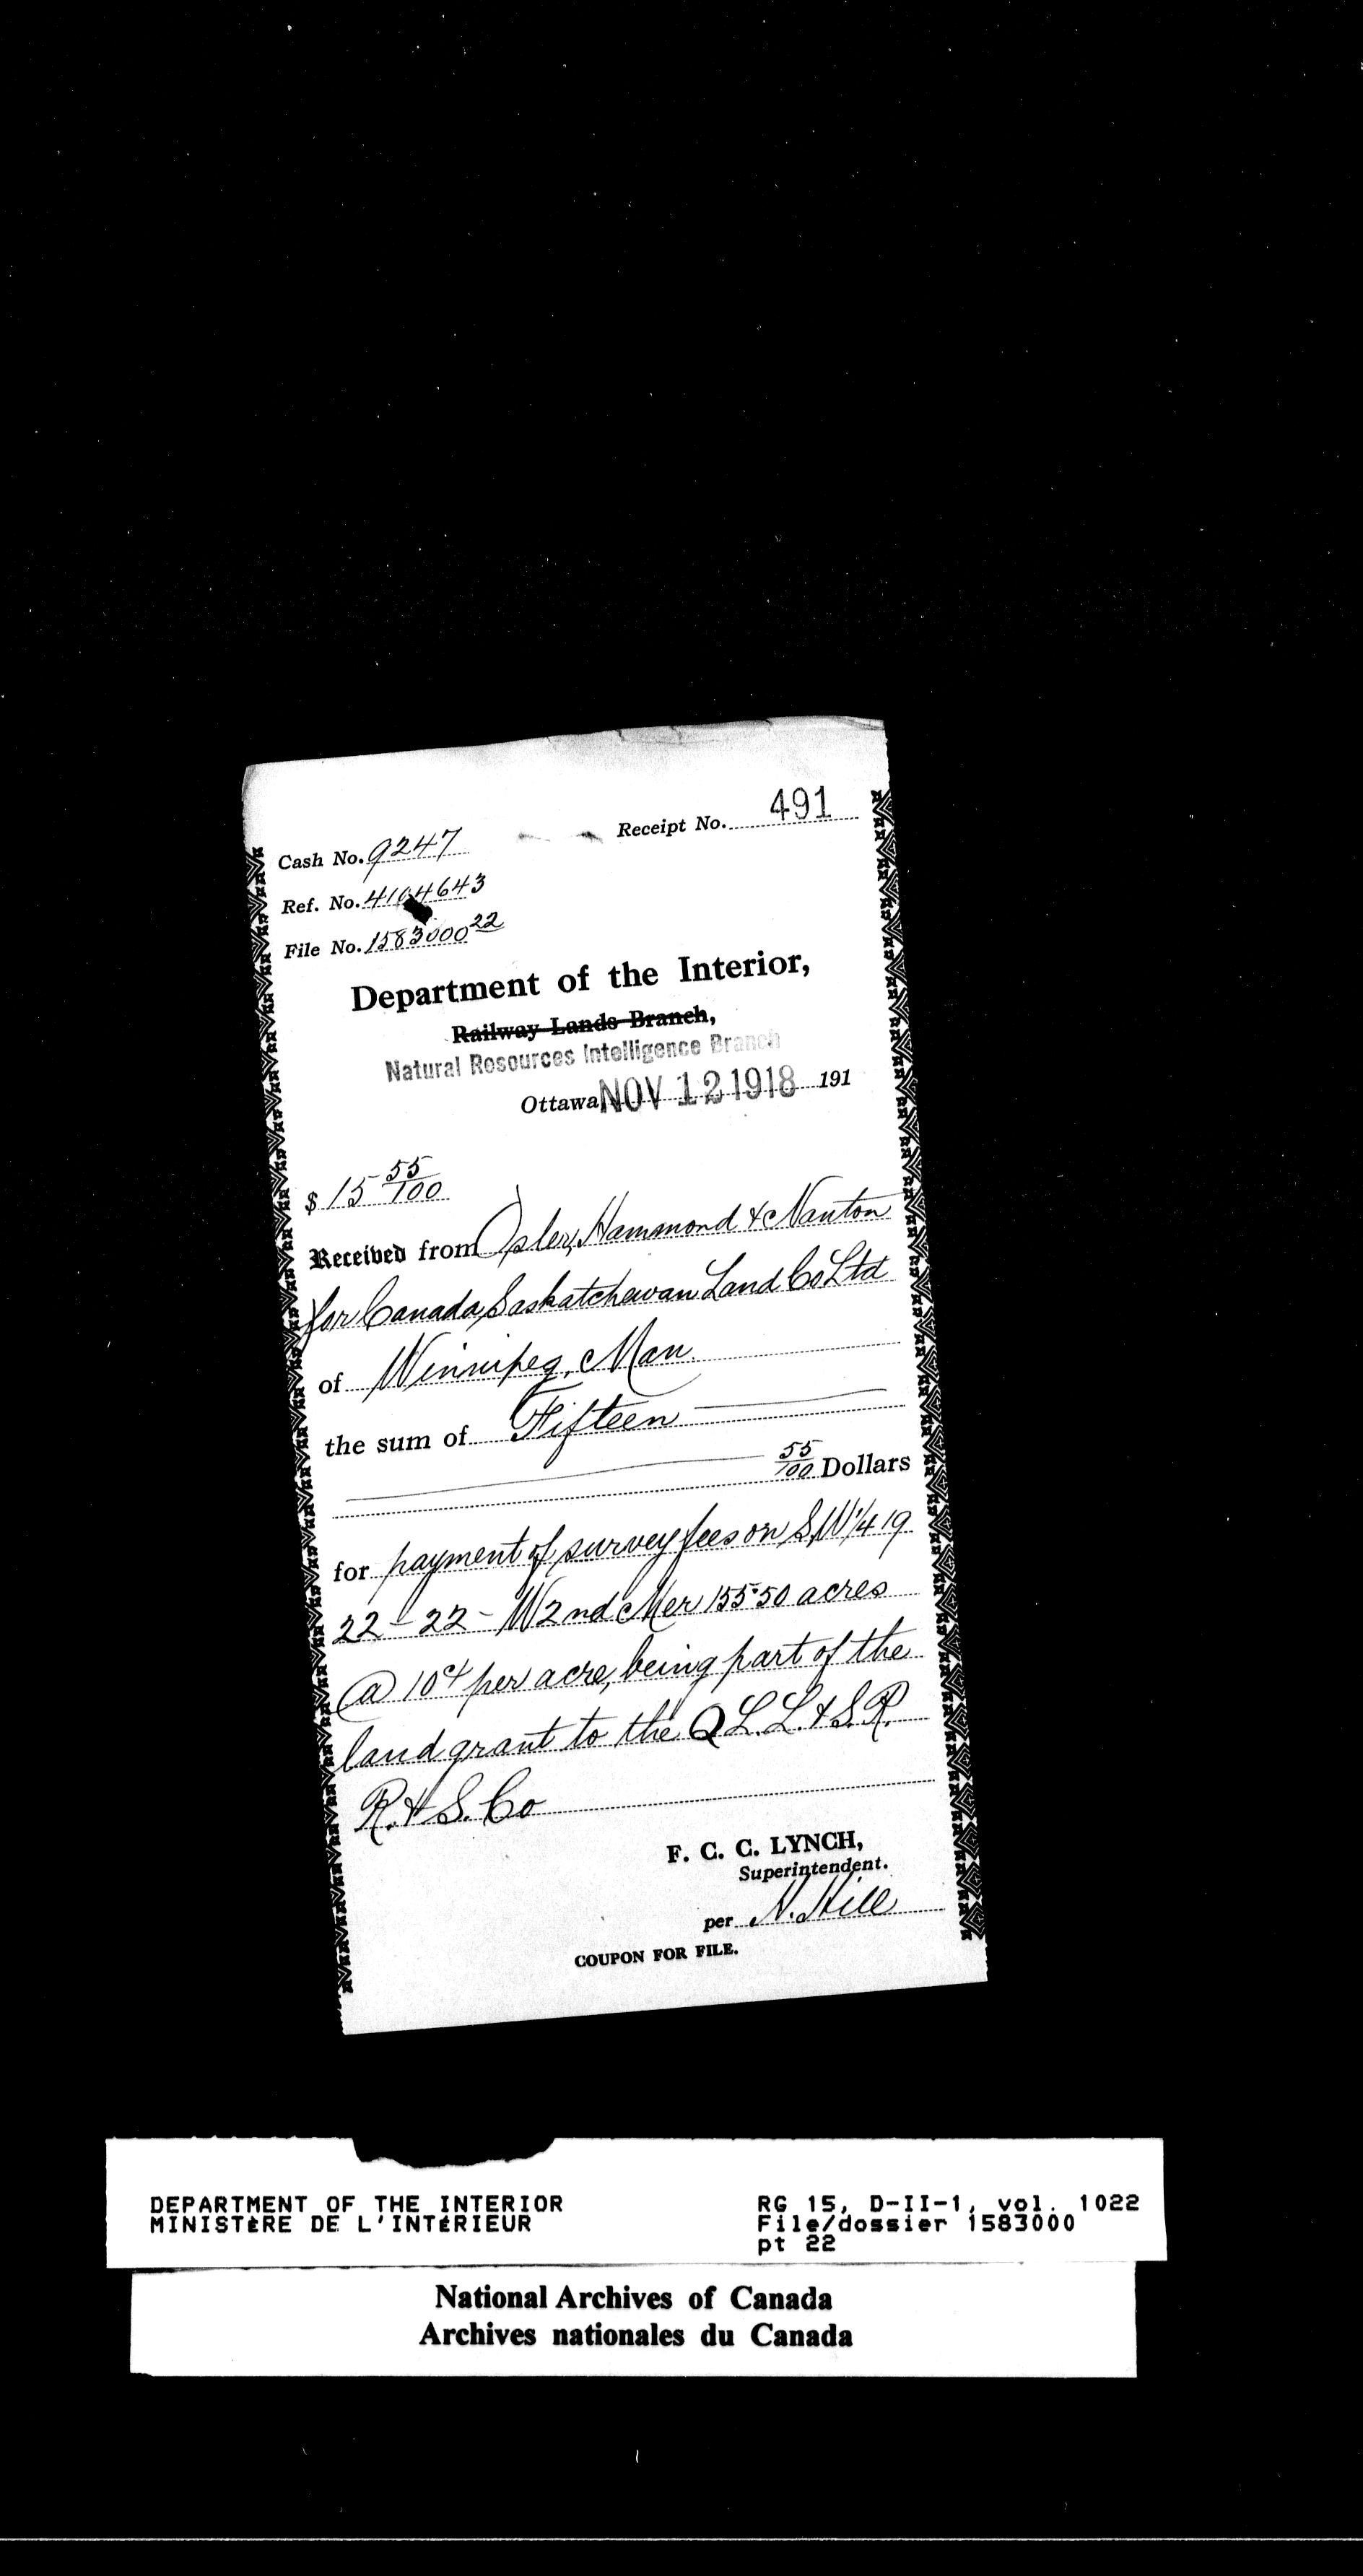 Receipt No. 491
Cash No. 9247
Ref. No. 4104643
File No. 1583000 22
Department of the Interior,
Railway Lands Branch,
Natural Resources Intelligence Branch
Ottawa NOV 12 1918 191
$ 15 55/100
Received from Osler, Hammond & Nanton
for Canada Saskatchewan Land Co Ltd
of Winnipeg, Man.
the sum of Fifteen
55/100 Dollars
for payment of survey fees on S.W. 1/4 19
22 - 22 - W 2nd Mer 155.50 acres
@ 10¢ per acre, being part of the
land grant to the Q L. L. & S. R.
R. & S. Co
F. C. C. LYNCH,
Superintendent.
per N. Hill
COUPON FOR FILE.
DEPARTMENT OF THE INTERIOR
MINISTÈRE DE L'INTÉRIEUR
RG 15, D-II-1, vol. 1022
File/dossier 1583000
pt 22
National Archives of Canada
Archives nationales du Canada